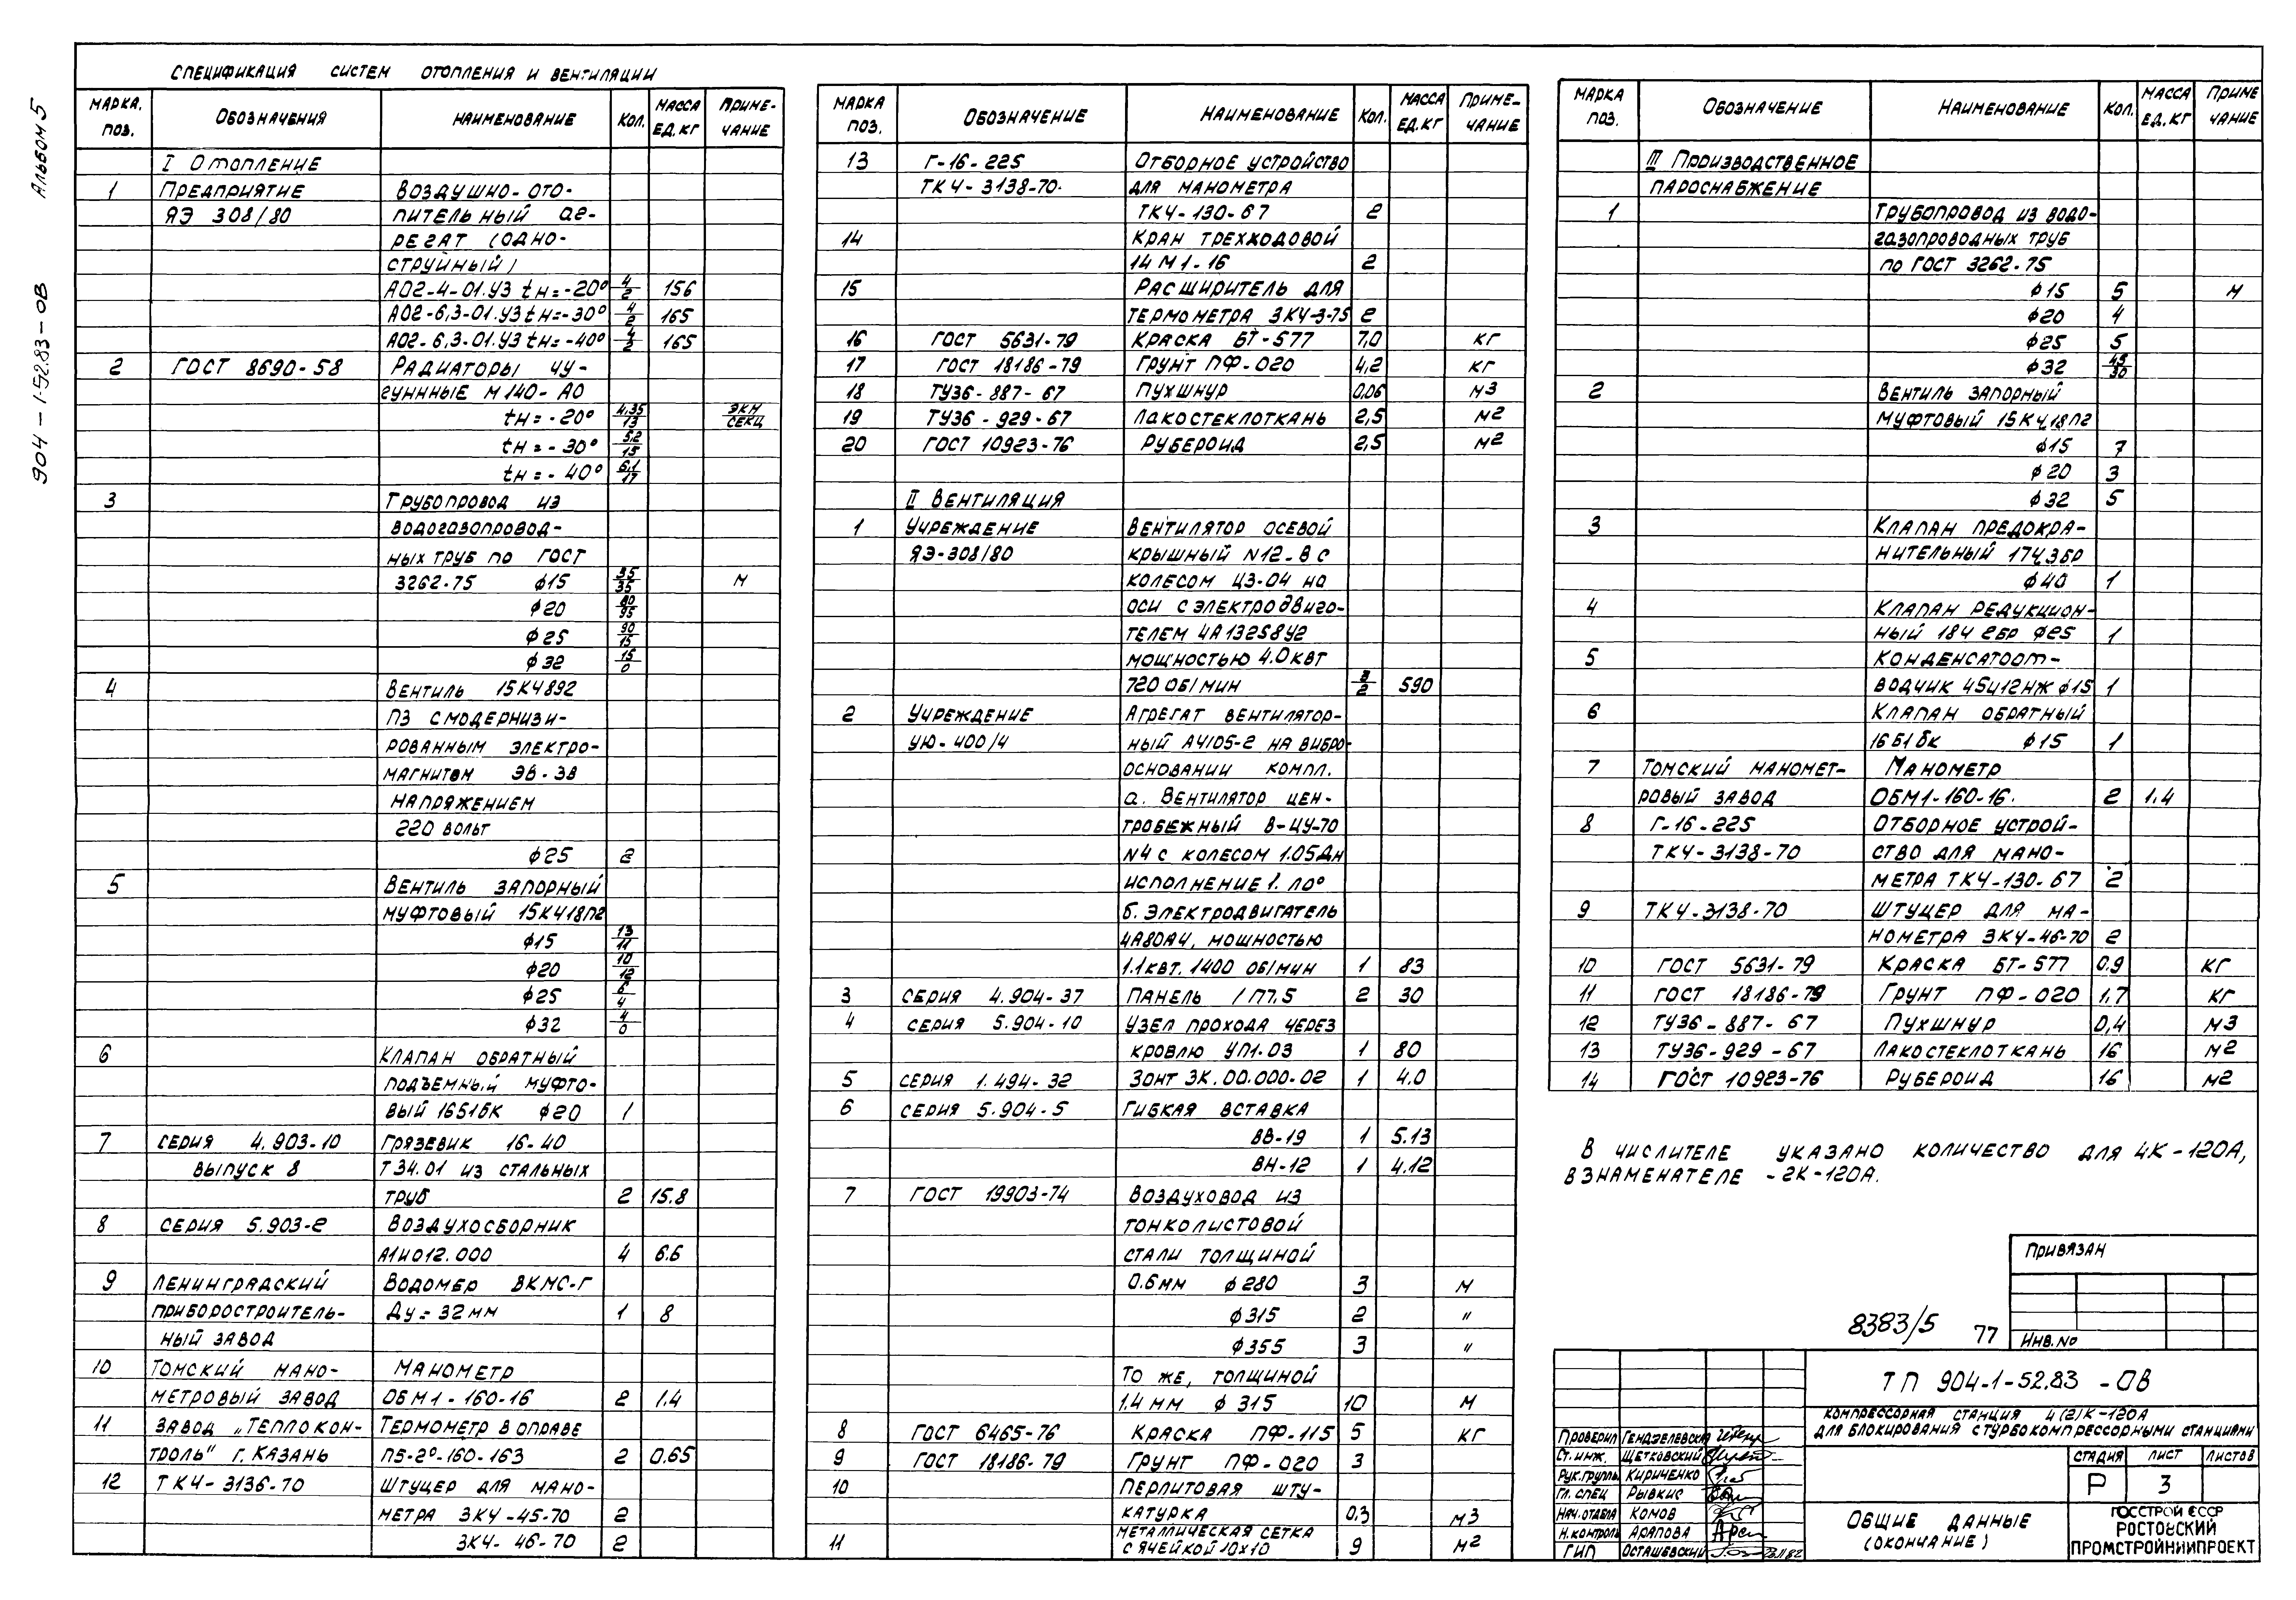 Альбом 5
904-1-52.83-ОВ
Спецификация систем отопления и вентиляции
Марка, поз. Обозначения Наименование Кол. Масса ед. кг Примечание
I Отопление
1 Предприятие Воздушно-ото-
ЯЭ 308/80 пительный аг-
регат (одно-
струйный)
АО2-4-01.У3 tн=-20° 4/2 156
АО2-6,3-01.У3 tн=-30° 4/2 165
АО2-6,3-01.У3 tн=-40° 4/2 165
2 ГОСТ 8690-58 Радиаторы чу-
гунные М140-АО
tн=-20° 4.35/13 экм/секц
tн=-30° 5.2/15
tн=-40° 6.1/17
3 Трубопровод из
водогазопровод-
ных труб по ГОСТ
3262-75 ф15 35/35 м
ф20 80/95
ф25 90/15
ф32 15/0
4 Вентиль 15КЧ892
П3 с модернизи-
рованным электро-
магнитом ЭВ-3В
напряжением
220 вольт
ф25 2
5 Вентиль запорный
муфтовый 15КЧ18П2
ф15 13/11
ф20 10/12
ф25 6/4
ф32 4/0
6 Клапан обратный
подъемный муфто-
вый 16б1бк ф20 1
7 Серия 4.903-10 Грязевик 16-40
выпуск 8 Т34.01 из стальных
труб 2 15.8
8 Серия 5.903-2 Воздухосборник
А1И012.000 4 6.6
9 Ленинградский Водомер ВКМС-Г
приборостроитель- Ду=32мм 1 8
ный завод
10 Томский мано- Манометр
метровый завод ОБМ1-160-16 2 1.4
11 Завод „Теплокон- Термометр в оправе
троль" г. Казань П5-2°-160-163 2 0.65
12 ТКЧ-3136-70 Штуцер для мано-
метра ЗКЧ-45-70 2
ЗКЧ-46-70 2
Марка поз. Обозначение Наименование Кол. Масса ед. кг Примечание
13 Г-16-225 Отборное устройство
ТКЧ-3138-70. для манометра
ТКЧ-130-67 2
14 Кран трехходовой
14М1-16 2
15 Расширитель для
термометра ЗКЧ-3-75 2
16 ГОСТ 5631-79 Краска БТ-577 7,0 кг
17 ГОСТ 18186-79 Грунт ПФ-020 4,2 кг
18 ТУ36-887-67 Пухшнур 0,06 м3
19 ТУ36-929-67 Лакостеклоткань 2,5 м2
20 ГОСТ 10923-76 Рубероид 2,5 м2
II Вентиляция
1 Учреждение Вентилятор осевой
ЯЭ-308/80 крышный N12-8 с
колесом ЦЗ-04 на
оси с электродвига-
телем 4А132S8У2
мощностью 4.0 квт
720 об/мин 3/2 590
2 Учреждение Агрегат вентилятор-
УЮ-400/4 ный А4105-2 на вибро-
основании компл.
а. Вентилятор цен-
тробежный В-Ц4-70
N4 с колесом 1.05Дн
исполнение 1. Л0°
б. Электродвигатель
4А80А4, мощностью
1.1квт. 1400 об/мин 1 83
3 Серия 4.904-37 Панель 1П7.5 2 30
4 Серия 5.904-10 Узел прохода через
кровлю УП1.03 1 80
5 Серия 1.494-32 Зонт ЗК.00.000-02 1 4.0
6 Серия 5.904-5 Гибкая вставка
ВВ-19 1 5.13
ВН-12 1 4.12
7 ГОСТ 19903-74 Воздуховод из
тонколистовой
стали толщиной
0.6мм ф280 3 м
ф315 2 "
ф355 3 "
То же, толщиной
1.4мм ф315 10 м
8 ГОСТ 6465-76 Краска ПФ-115 5 кг
9 ГОСТ 18186-79 Грунт ПФ-020 3
10 Перлитовая шту-
катурка 0,3 м3
11 Металлическая сетка
с ячейкой 10х10 9 м2
Марка поз. Обозначение Наименование Кол. Масса ед. кг Примечание
III Производственное
пароснабжение
1 Трубопровод из водо-
газопроводных труб
по ГОСТ 3262-75
ф15 5 м
ф20 4
ф25 5
ф32 45/30
2 Вентиль запорный
муфтовый 15КЧ18П2
ф15 7
ф20 3
ф32 5
3 Клапан предохра-
нительный 17Ч3БР
ф40 1
4 Клапан редукцион-
ный 18Ч2БР ф25 1
5 Конденсатоот-
водчик 45ч12НЖ ф15 1
6 Клапан обратный
16б1бк ф15 1
7 Томский маномет- Манометр
ровый завод ОБМ1-160-16. 2 1.4
8 Г-16-225 Отборное устрой-
ТКЧ-3138-70 ство для мано-
метра ТКЧ-130-67 2
9 ТКЧ-3138-70 Штуцер для ма-
нометра ЗКЧ-46-70 2
10 ГОСТ 5631-79 Краска БТ-577 0.9 кг
11 ГОСТ 18186-79 Грунт ПФ-020 1,7 кг
12 ТУ36-887-67 Пухшнур 0,4 м3
13 ТУ36-929-67 Лакостеклоткань 16 м2
14 ГОСТ 10923-76 Рубероид 16 м2
В числителе указано количество для 4К-120А,
в знаменателе -2К-120А.
Привязан
Инв.No
8383/5 77
ТП 904-1-52.83 -ОВ
Компрессорная станция 4(2)К-120А
для блокирования с турбокомпрессорными станциями
Проверил Гендзелевская
Ст. инж. Щетковский
Рук.группы Кириченко
Гл. спец Рывкис
Нач.отдела Комов
Н.контроль Арапова
ГИП Осташевский
Стадия Лист Листов
Р 3
Общие данные
(окончание)
Госстрой СССР
Ростовский
Промстройниипроект